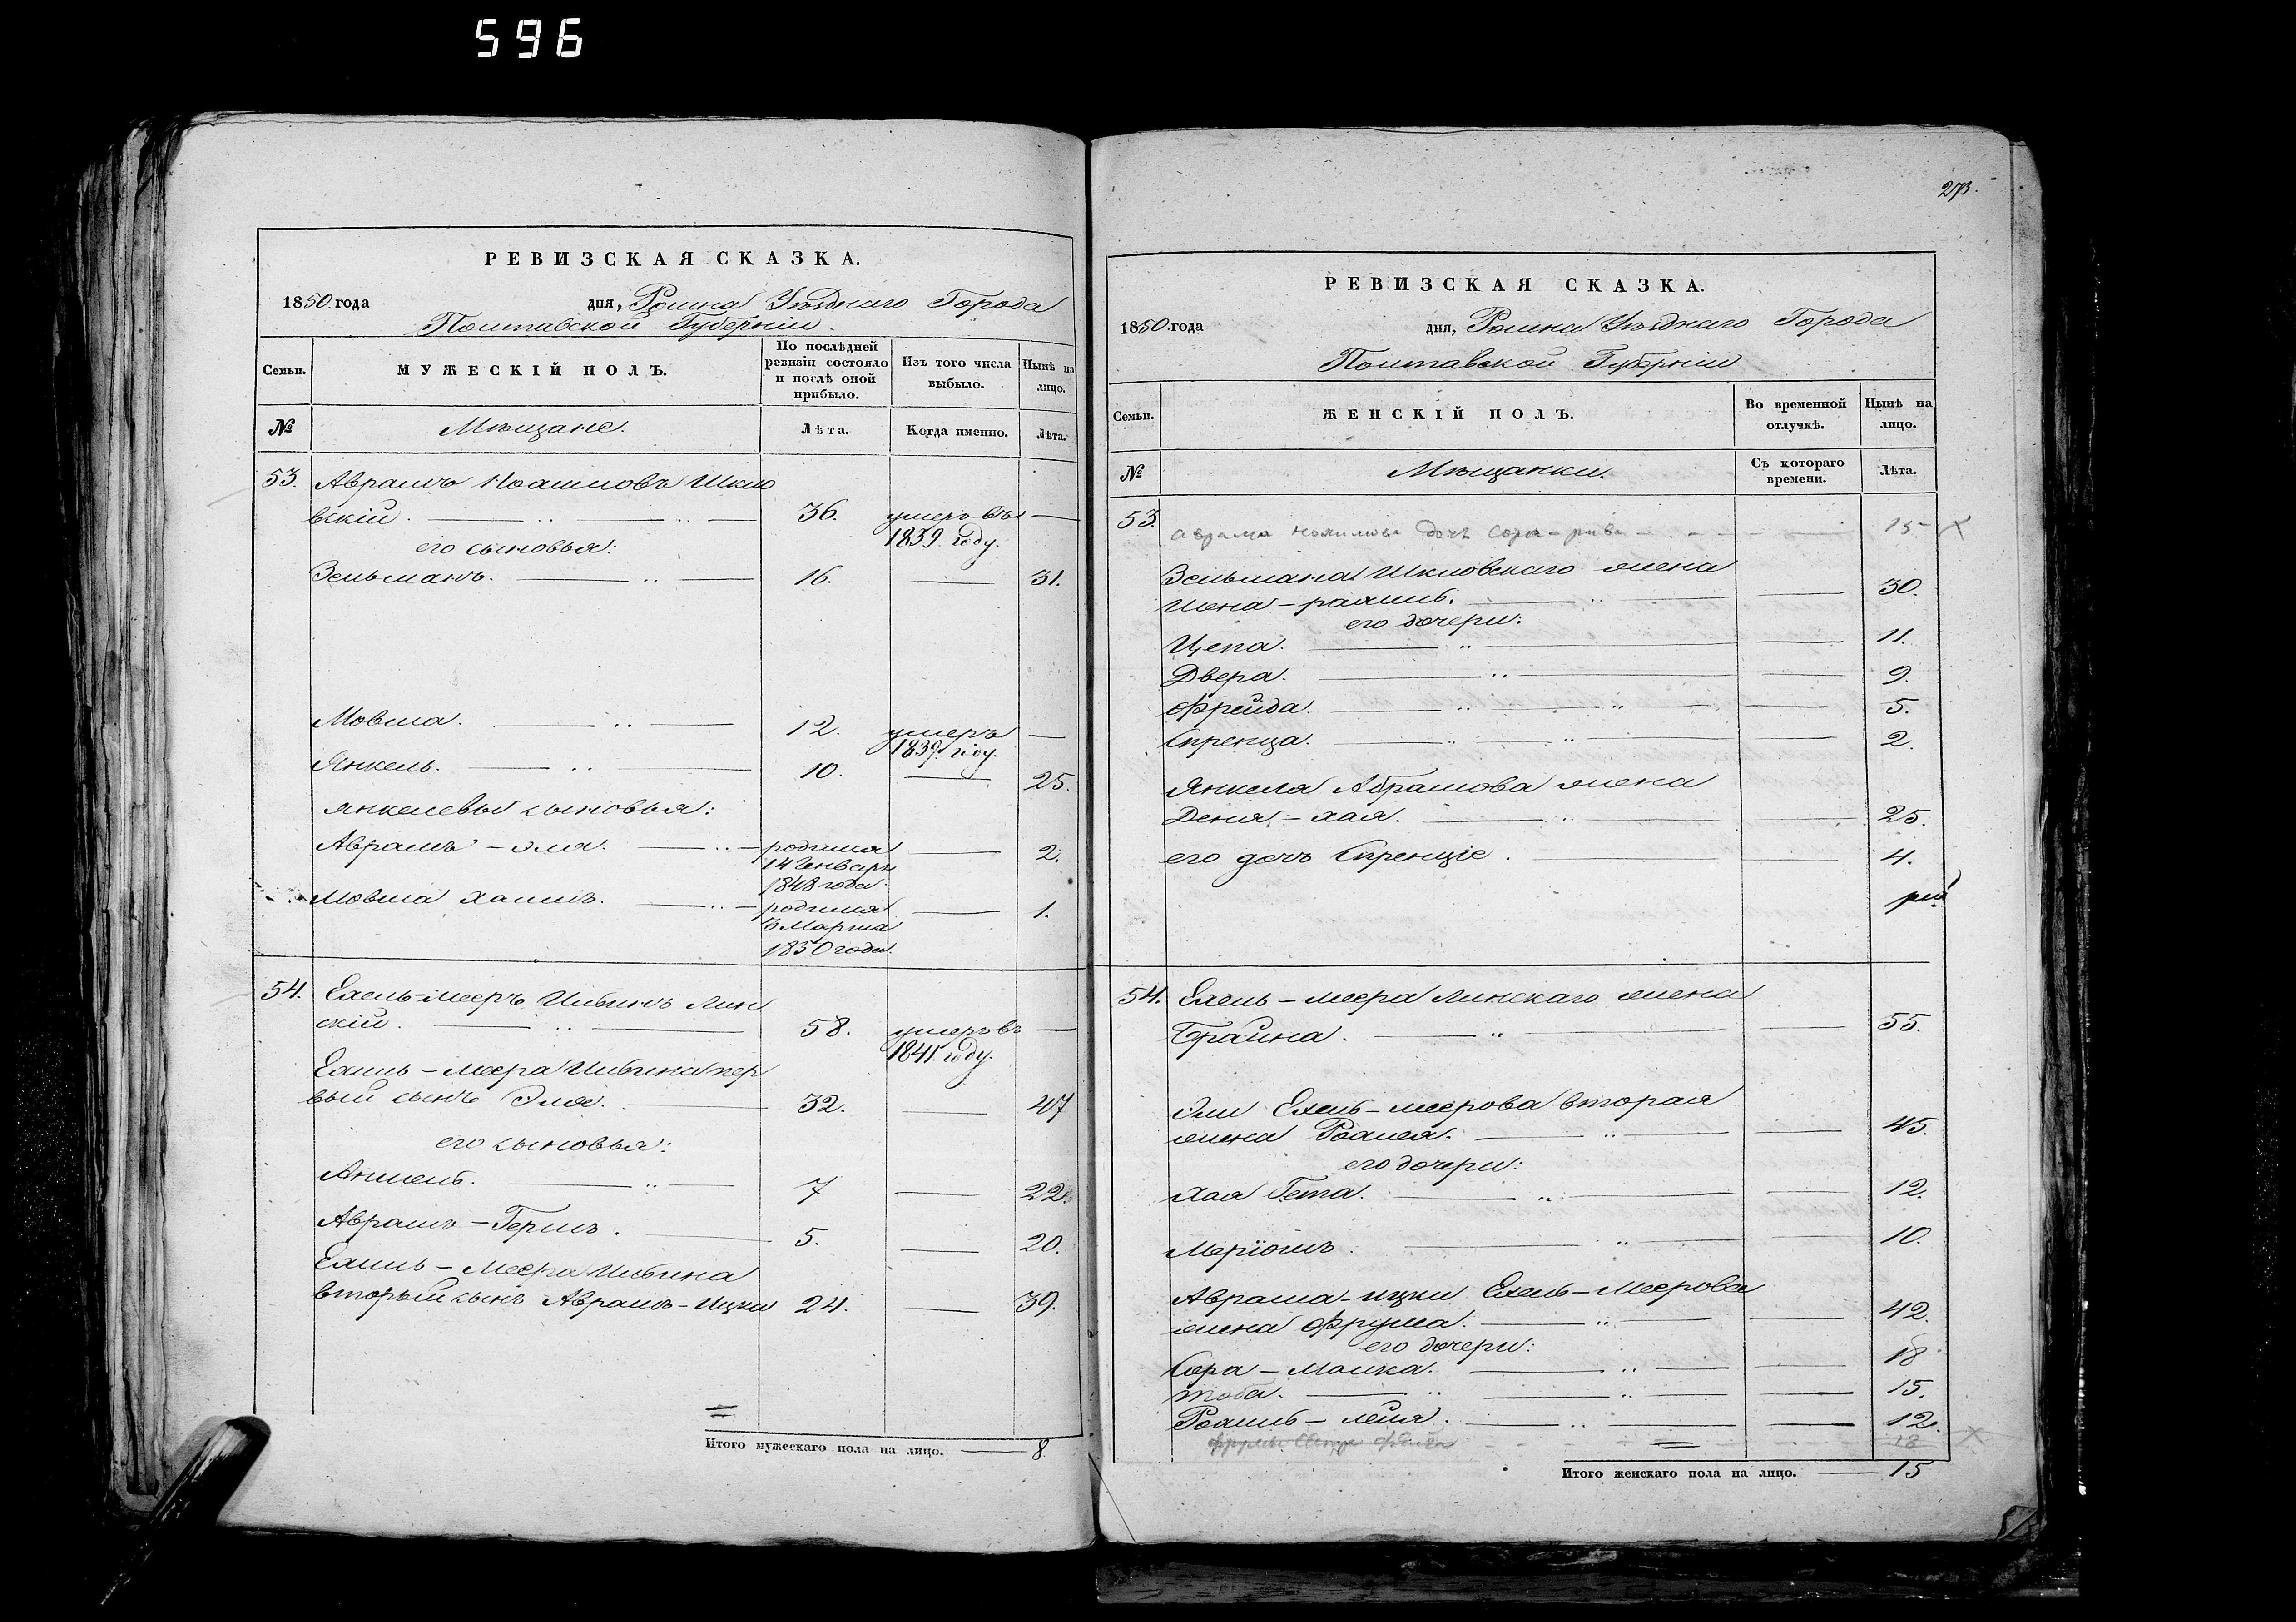 596
РЕВИЗСКАЯ СКАЗКА.
1850. года дня, Ромна Уѣзднаго Города
Полтавской Губерніи.
Семьи. МУЖЕСКІЙ ПОЛЪ. По послѣдней ревизіи состояло и послѣ оной прибыло. Изъ того числа выбыло. Нынѣ на лицо.
№ Мѣщане. Лѣта. Когда именно. Лѣта.
53. Аврамъ Шкло
вскій. 36. умеръ въ
1839. году.
его сыновья:
Зельманъ. 16. 31.
Мовша. 12. умеръ
1839. году.
Янкель. 10. 25.
Янкелевы сыновья:
Аврамъ-Эля. родился 2.
14 Генваря
1848 года.
Мовша Хаимъ. родился 1.
5 Марта
1850 года.
54. Ехель-Мееръ Лин
скій. 58. умеръ въ
1841. году.
Ехиль-Меера пер
вый сынъ Элья. 32. 47
его сыновья:
Аншель. 7 22.
Аврамъ-Гершъ. 5. 20.
Ехиль-Меера
вторый сынъ Аврамъ-Ицка 24. 39.
Итого мужескаго пола на лицо. 8.
273.
РЕВИЗСКАЯ СКАЗКА.
1850. года дня, Ромна Уѣзднаго Города
Полтавской Губерніи
Семьи. ЖЕНСКІЙ ПОЛЪ. Во временной отлучкѣ. Нынѣ на лицо.
№ Мѣщанки. Съ котораго времени. Лѣта.
53. Аврама дочь Сора-рива 15 X
Зельмана Шкловскаго жена
30.
его дочери:
Цепа. 11.
Двера. 9.
Фрейда. 5.
Спренца. 2.
Янкеля Абрамова жена
Деня-Хая. 25.
его дочь Спренціе. 4.
54. Ехель-Меера Линскаго жена
Брайна. 55.
Эли Ехель-Меерова вторая
жена 45.
его дочери:
Хая Гета. 12.
Меріомъ. 10.
Аврама-Ицки Ехель-Меерова
жена Фрума. 42.
его дочери:
Сора-Малка. 18
Тоба. 15.
Рохиль-Лея. 12.
18 X
Итого женскаго пола на лицо. 15